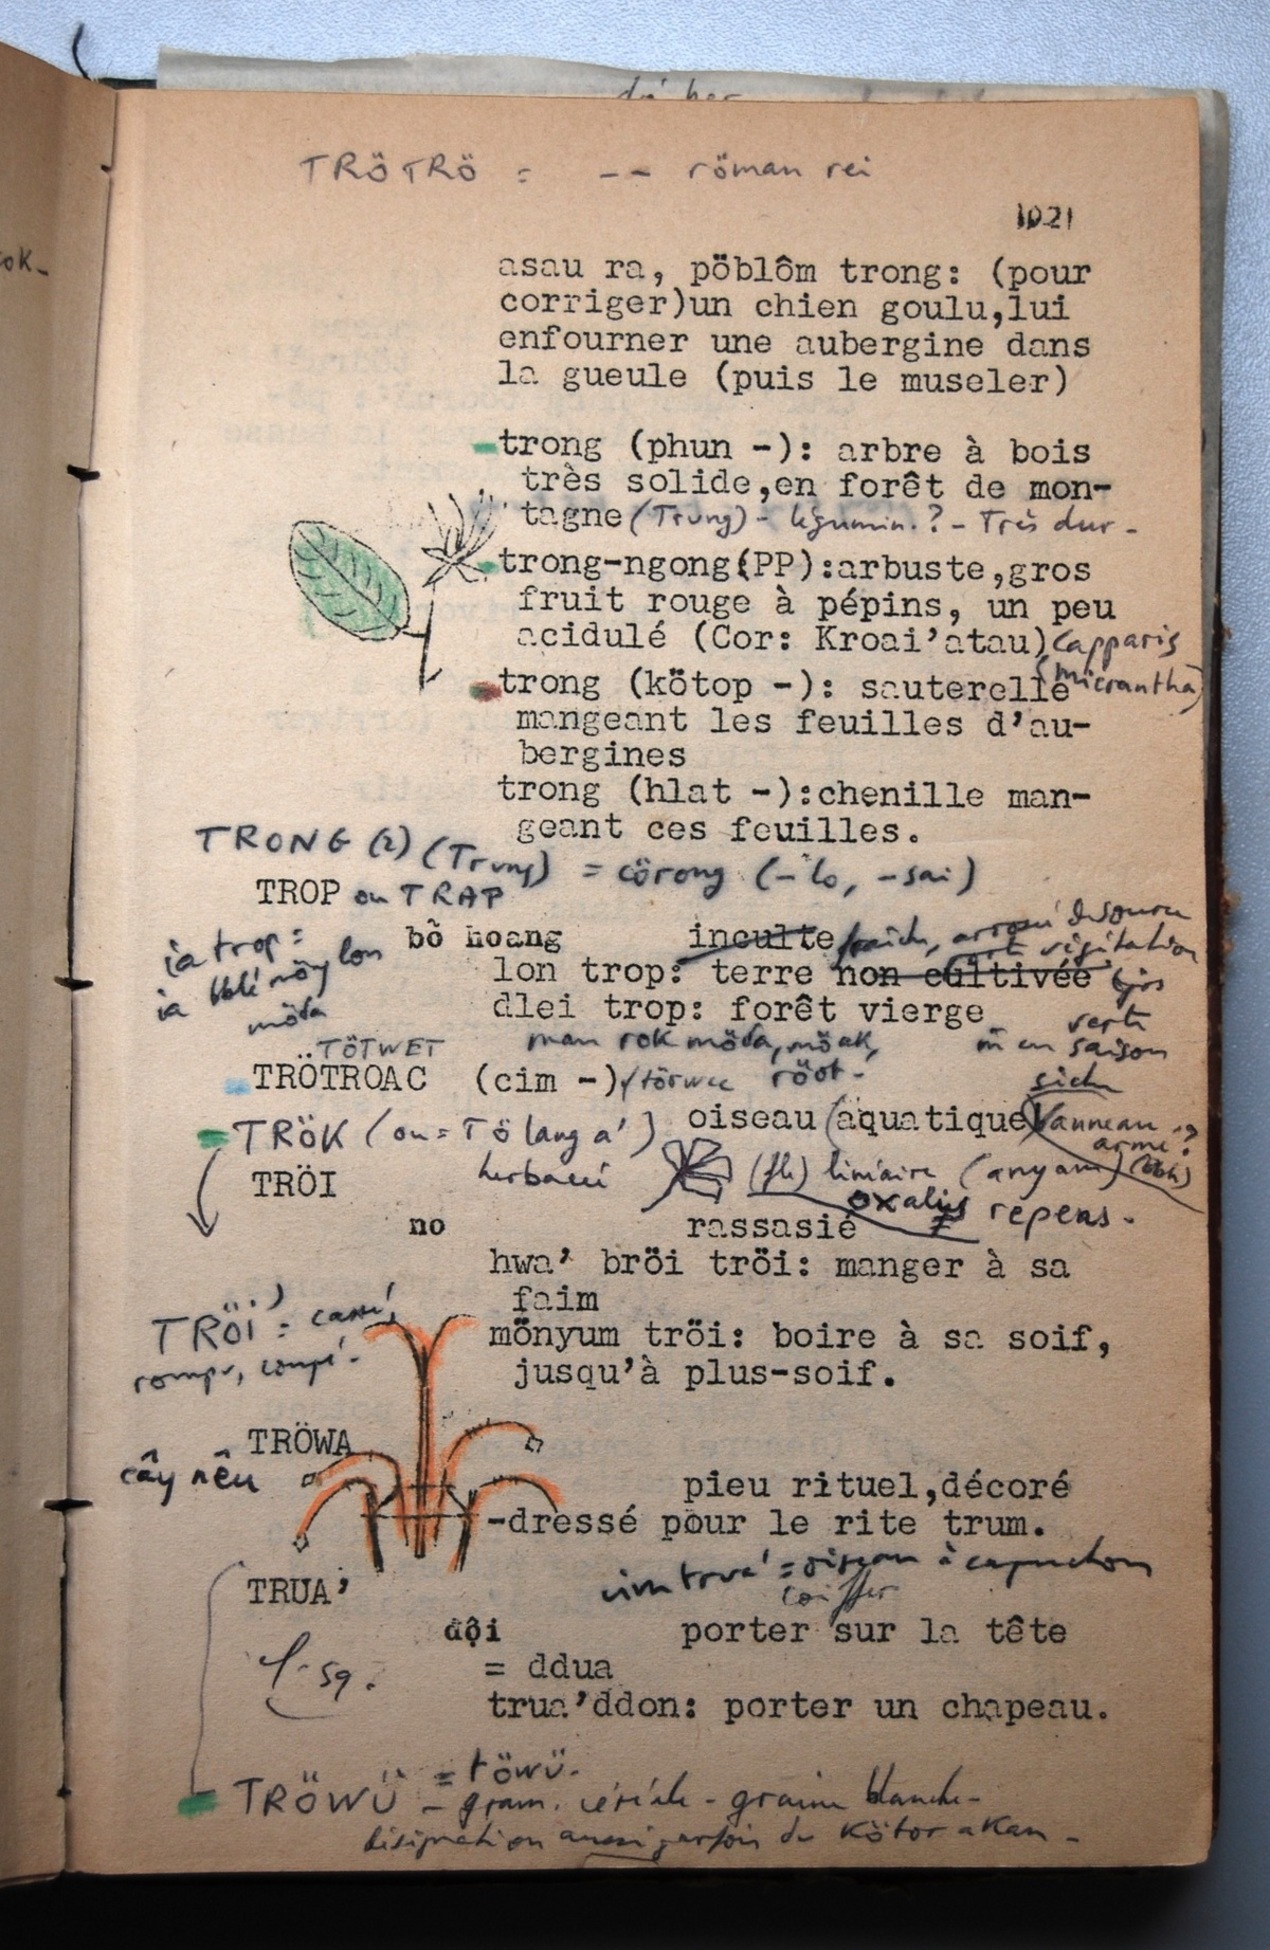 TRÖTRÖ = -- röman rei
1021
asau ra, pöblôm trong: (pour
corriger)un chien goulu,lui
enfourner une aubergine dans
la gueule (puis le museler)
trong (phun -): arbre à bois
très solide,en forêt de mon-
tagne (Trung) - légumin.? - Très dur -
trong-ngong(PP):arbuste,gros
fruit rouge à pépins, un peu
acidulé (Cor: Kroai'atau) capparis
(micrantha)
trong (kötop -): sauterelle
mangeant les feuilles d'au-
bergines
trong (hlat -):chenille man-
geant ces feuilles.
TRONG (2) (Trung) = cörong (-lo, -sai)
TROP ou TRAP
ia trop =
bỏ hoang inculte
lon trop: terre non cultivée
dlei trop: forêt vierge
möda
man rok möda, möak,
verte
m en saison
TÖTWET
sich
TRÖTROAC (cim -)
oiseau (aquatique) Vanneau
armé?
TRÖK (ou = Tölang a')
herbacé (fl) linéaire (anyam)
oxalis repens.
TRÖI
no rassasié
hwa' bröi tröi: manger à sa
faim
mönyum tröi: boire à sa soif,
jusqu'à plus-soif.
TRÖI' = cassé,
rompu, coupé.
TRÖWA
cây nêu
pieu rituel,décoré
-dressé pour le rite trum.
cim trua' = oiseau à capuchon
TRUA'
coiffer
đội porter sur la tête
= ddua
trua'ddon: porter un chapeau.
TRÖWÜ = töwü.
- gram. céréale - graine blanche -
désignation aussi parfois du Kötor akan -